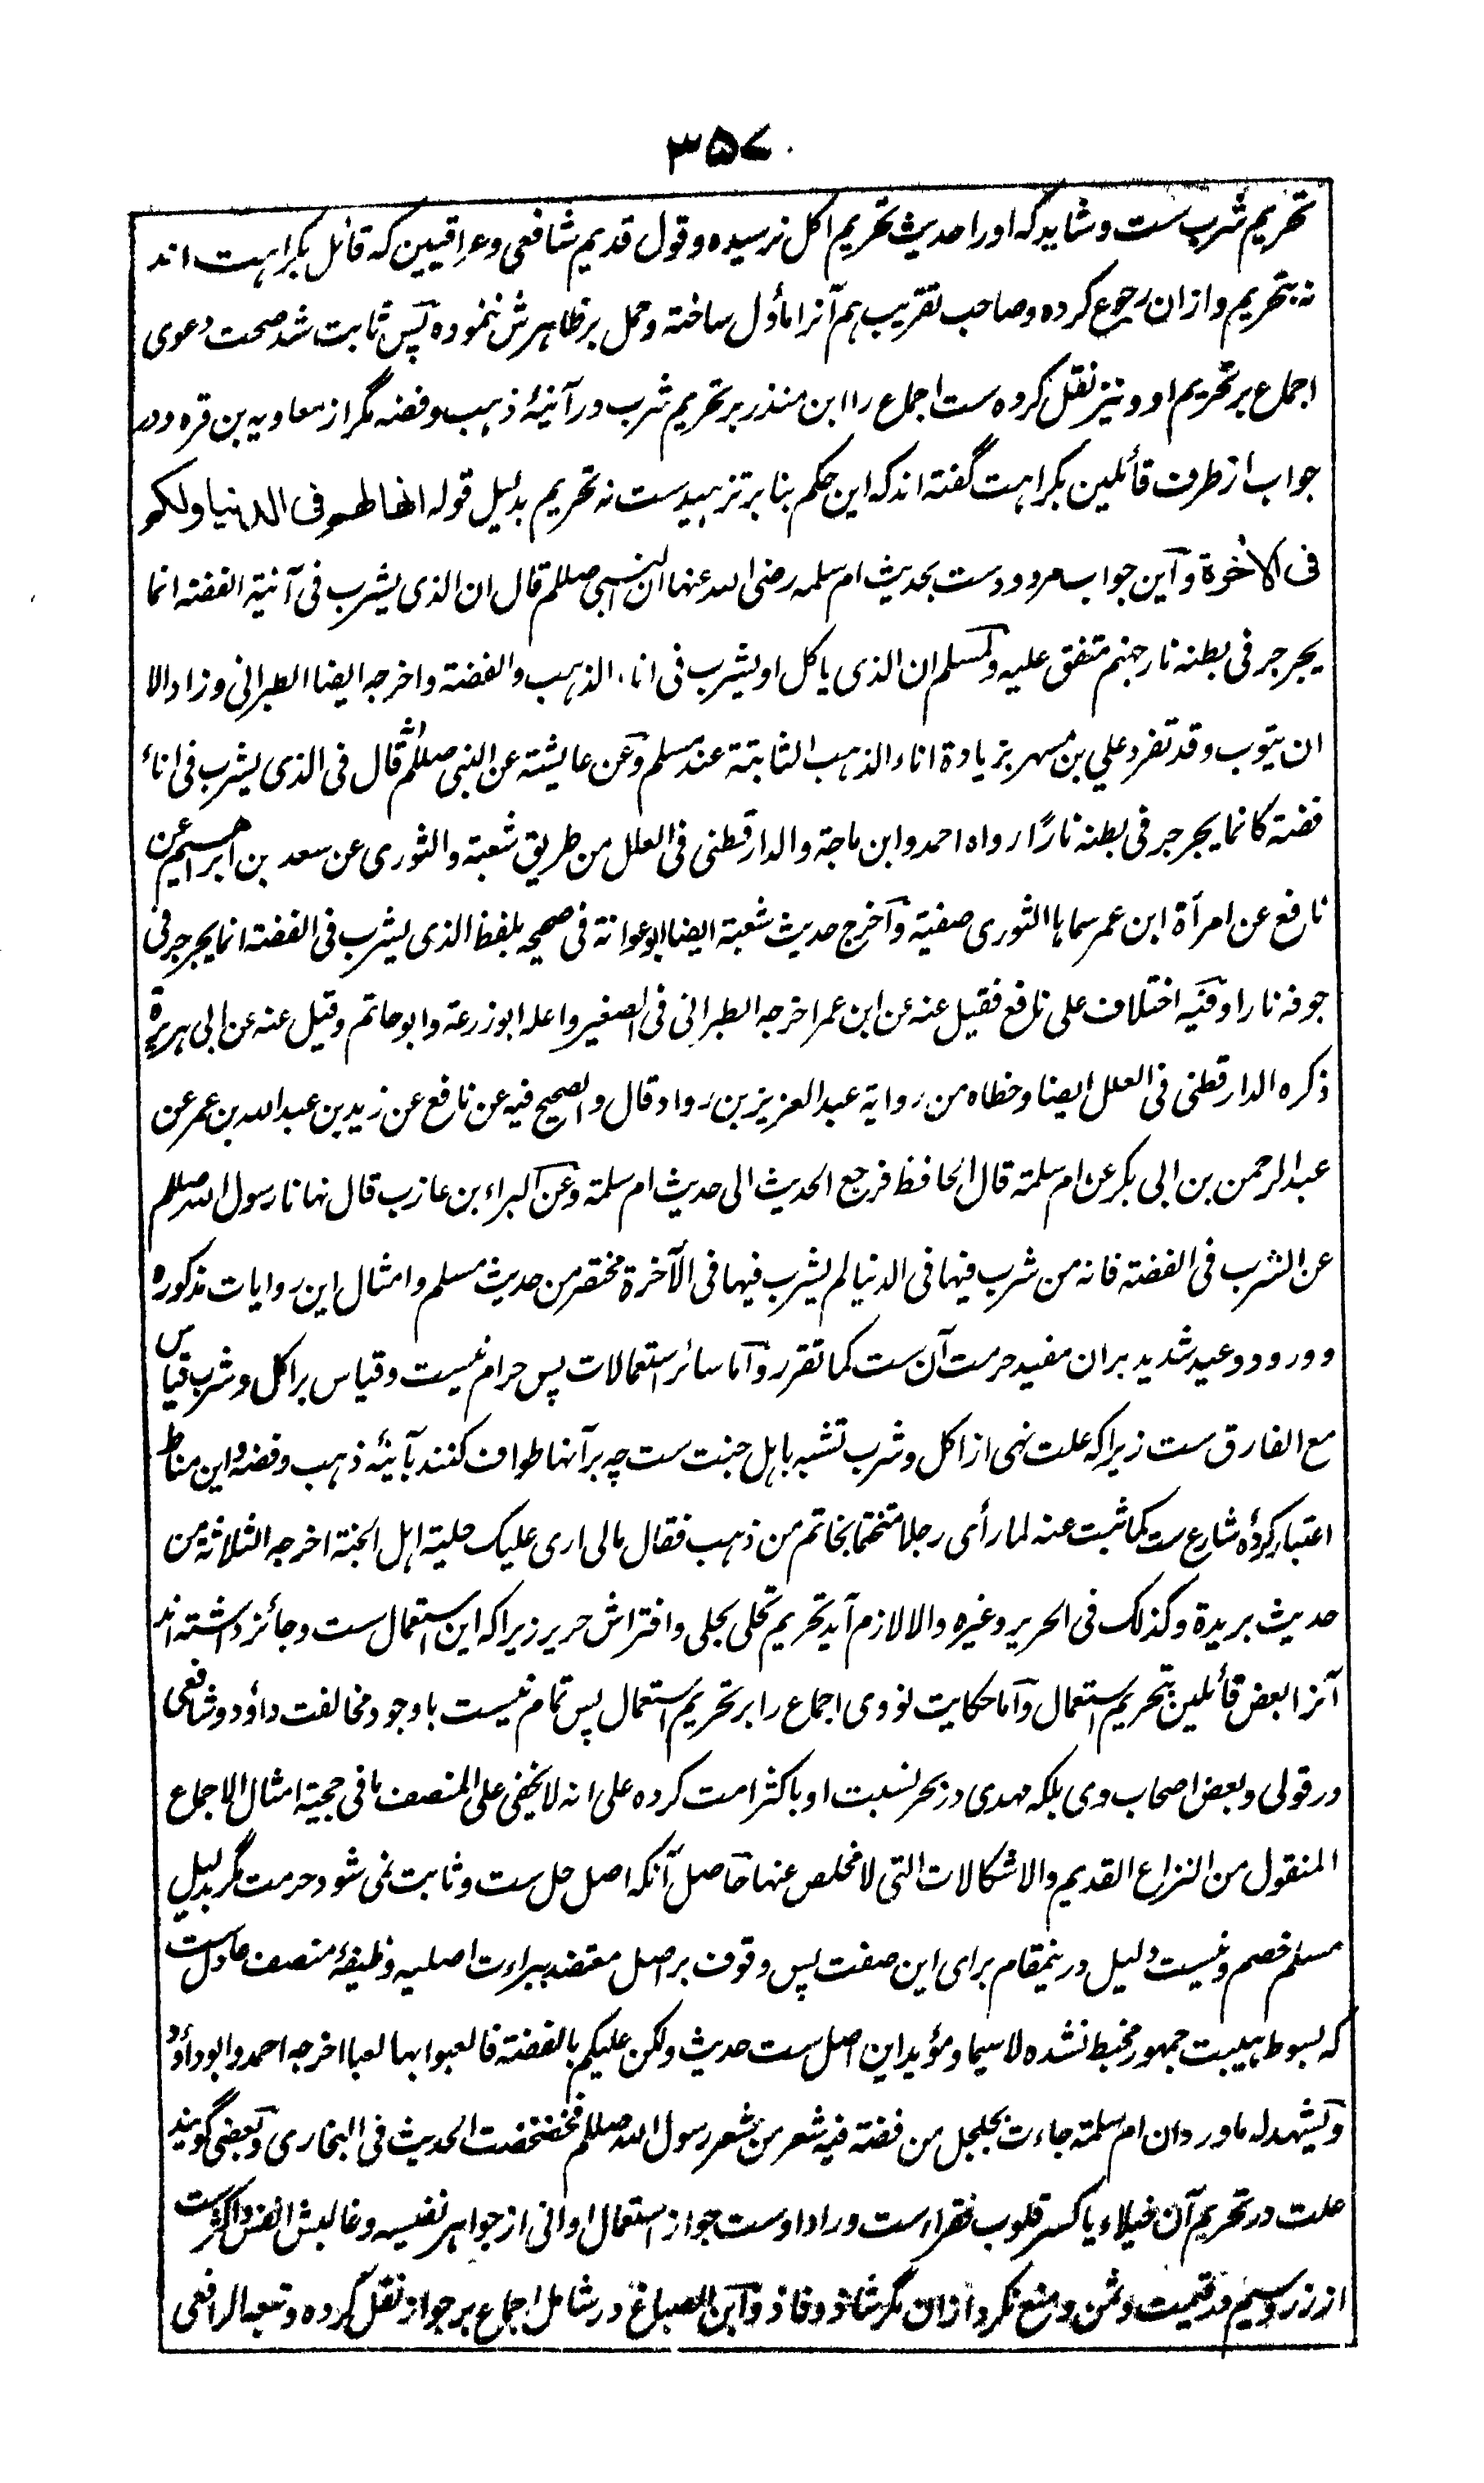 ۳۵۷
تحریم شرب ست و شاید که او را حدیث تحریم اکل نرسیده و قول قدیم شافعی و عراقیین که قائل بکراہت اند
نہ بتحریم و ازان رجوع کرده و صاحب تقریب ہم آنرا مأول ساخته و حمل بر ظاہرش ننموده پس ثابت شد صحت دعوی
اجماع بر تحریم او و نیز نقل کرده ست اجماع را ابن منذر بر تحریم شرب در آنیۂ ذہب و فضه مگر از معاویه بن قره و در
جواب از طرف قائلین بکراہت گفته اند که این حکم بنا بر تزہید ست نہ تحریم بدلیل قوله انها لهم فی الدنیا ولکم
فی الاخرة و این جواب مردود ست بحدیث ام سلمه رضی الله عنہا ان النبی صللم قال ان الذی یشرب فی آنیة الفضة انما
یجرجر فی بطنہ نار جہنم متفق علیه و لمسلم ان الذی یاکل او یشرب فی اناء الذہب والفضة واخرجه ایضا الطبرانی و زاد الا
ان یتوب وقد تفرد علی بن مسہر بزیادة اناء الذہب الثابتة عند مسلم و عن عایشة عن النبی صللم انه قال فی الذی یشرب فی اناء
فضة کانما یجرجر فی بطنه نارًا رواه احمد وابن ماجة والدارقطنی فی العلل من طریق شعبة والثوری عن سعد بن ابراہیم عن
نافع عن امرأة ابن عمر سماہا الثوری صفیة و اخرج حدیث شعبة ایضا ابوعوانة فی صحیحه بلفظ الذی یشرب فی الفضة انما یجرجر فی
جوفه نارا و فیه اختلاف علی نافع فقیل عنه عن ابن عمر اخرجه الطبرانی فی الصغیر واعله ابوزرعة وابوحاتم وقیل عنه عن ابی ہریرة
ذکره الدارقطنی فی العلل ایضا وخطاه من روایة عبد العزیز بن رواد قال والصحیح فیه عن نافع عن زید بن عبد الله بن عمر عن
عبد الرحمن بن ابی بکر عن ام سلمة قال الحافظ فرجع الحدیث الی حدیث ام سلمة و عن البراء بن عازب قال نہانا رسول الله صللم
عن الشرب فی الفضة فانه من شرب فیہا فی الدنیا لم یشرب فیہا فی الآخرة مختصر من حدیث مسلم و امثال این روایات مذکوره
و ورود وعید شدید بران مفید حرمت آن ست کما تقرر و اما سائر استعمالات پس حرام نیست و قیاس بر اکل و شرب قیاس
مع الفارق ست زیرا که علت نہی از اکل و شرب تشبه باہل جنت ست چه بر آنہا طواف کنند بآنیۂ ذہب و فضه و این مناط
اعتبار کردۂ شارع ست کما ثبت عنه لما رأی رجلا متختما بخاتم من ذہب فقال مالی اری علیک حلیة اہل الجنة اخرجه الثلاثة من
حدیث بریدة وکذلک فی الحریر وغیره والا لازم آید تحریم تحلی بحلی و افتراش حریر زیرا که این استعمال ست و جائز داشته اند
آنرا بعض قائلین بتحریم استعمال و اما حکایت نووی اجماع را بر تحریم استعمال پس تمام نیست با وجود مخالفت داؤد و شافعی
در قولی و بعض اصحاب وی بلکه مہدی در بحر نسبت او باکثر امت کرده علی انه لا یخفی علی المنصف ما فی حجیة امثال الاجماع
المنقول من النزاع القدیم والاشکالات التی لا مخلص عنہا حاصل آنکه اصل حل ست و ثابت نمی شود حرمت مگر بدلیل
مسلم خصم و نیست دلیل درینمقام برای این صفت پس وقوف بر اصل معتضد ببراءت اصلیه وظیفۂ منصف عادل ست
که بسوط ہیبت جمہور مخبط نشده لاسیما و مؤید این اصل ست حدیث ولکن علیکم بالفضة فالعبوا بہا لعبا اخرجه احمد وابوداؤد
و یشہد له ما ورد ان ام سلمة جاءت بجلجل من فضة فیه شعر من شعر رسول الله صللم فخضخضت الحدیث فی البخاری و بعضی گویند
علت در تحریم آن خیلاء یا کسر قلوب فقراء ست و راد اوست جواز استعمال اوانی از جواہر نفیسه و غالبش انفس و اکثر ست
از زر و سیم در قیمت و ثمن و منع نکرد ازان مگر شاذ و فاذ و ابن الصباغ در شامل اجماع بر جواز نقل کرده و تبعه الرافعی